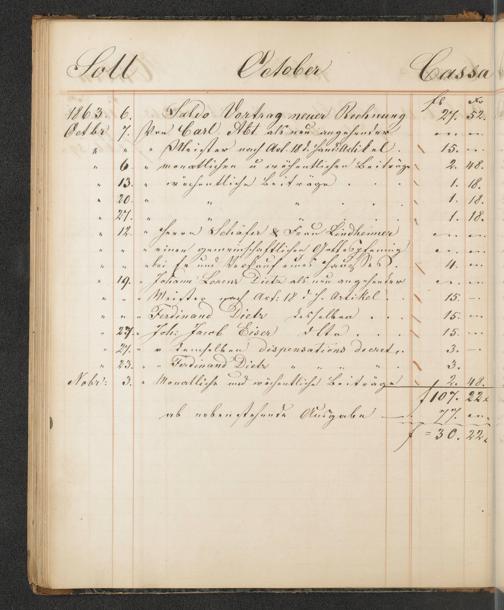 Soll October Cassa
fl. Xr
1863 6. Saldo Vortrag neuer Rechnung 27. 52.
Octbr 7. Von Carl Abt als neu angehender
" " " Meister nach Art. 18 d. Hand. Artikel . 15. —
" 6 " monatlichen u wöchentlichen Beiträge 2. 48.
" 13. " wöchentliche Beiträge . . . 1. 18.
" 20 " " " . . . 1. 18.
" 27. " " " . . . 1. 18.
" 12 " Herrn Schäfer & Frau Lindheimer
" " " einen gemeinschaftlichen Gottespfennig
" " " bei An und Verkauf eines Hauses . 4. —
" 19. " Johann Lorenz Dietz als neu angehender
" " " Meister nach Art. 18 d. H. Artikel . . 15. —
" " " Ferdinand Dietz desselben . . 15. —
" 27. " Joh. Jacob Eiser dtto . . . 15. —
" 21. " " demselben dispensations decret . 3. —
" 23. " " Ferdinand Dietz " " " " 3. —
Nobr. 3. " Monatliche und wöchentliche Beiträge 2. 48.
f 107. 22.
ab nebenstehende Ausgabe 77. —
f = 30. 22.